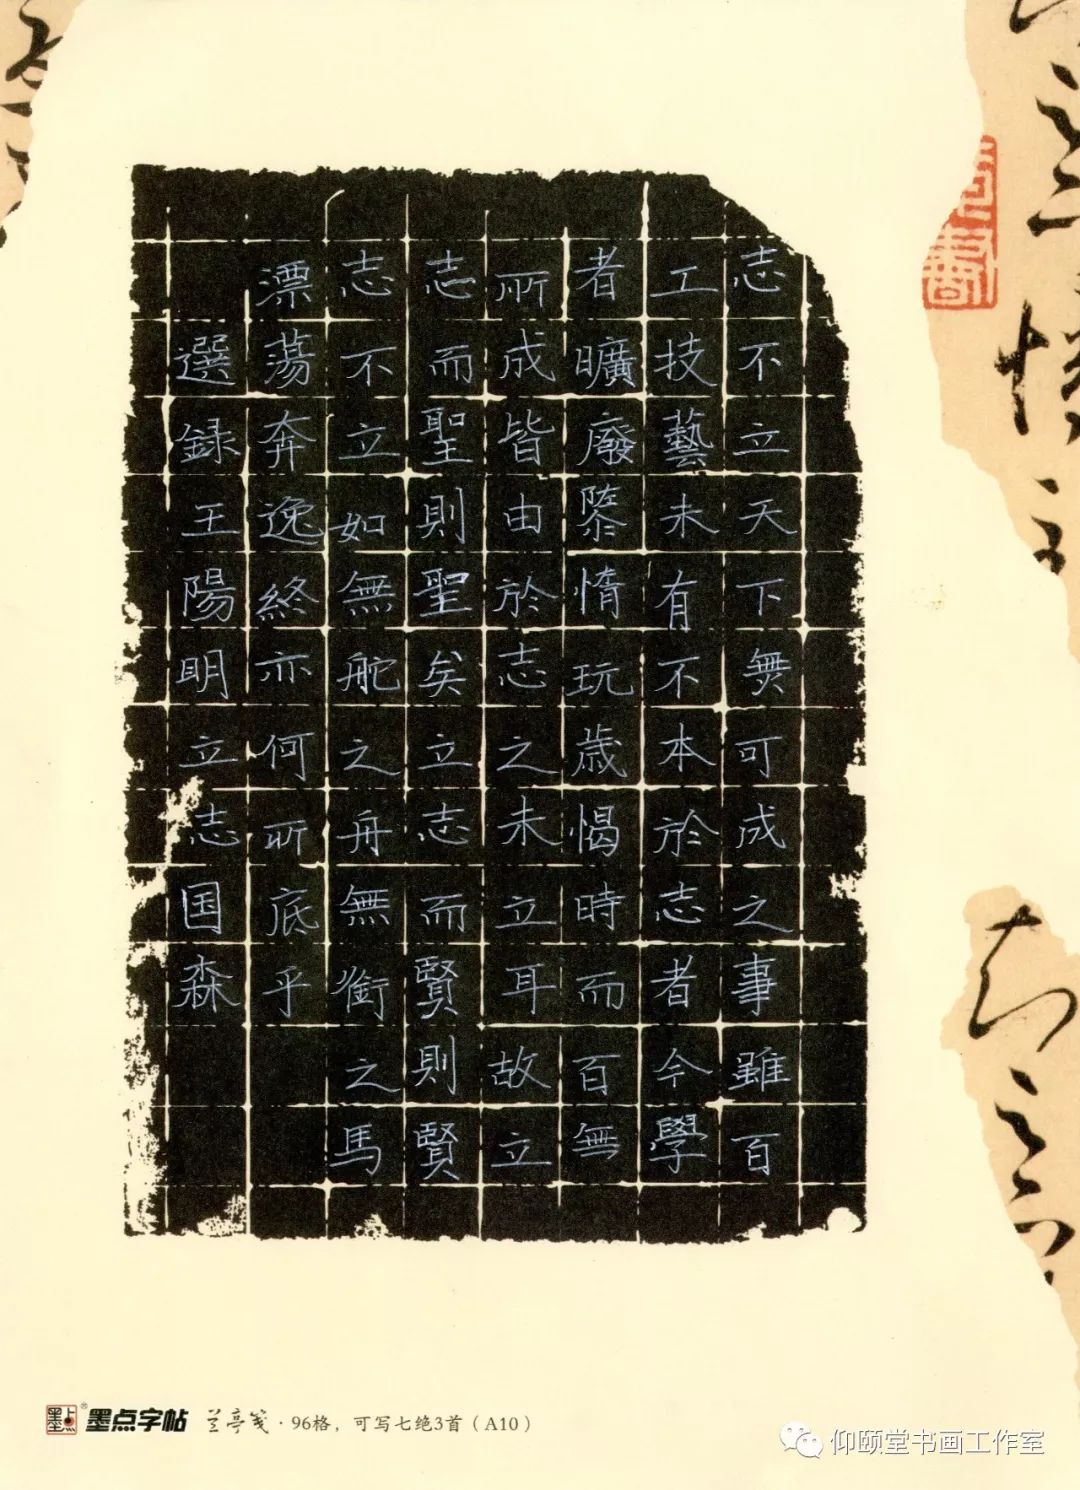 志不立天下無可成之事雖百
工技藝未有不本於志者今學
者曠廢隳惰玩歲愒時而百無
所成皆由於志之未立耳故立
志而聖則聖矣立志而賢則賢
志不立如無舵之舟無銜之馬
漂蕩奔逸終亦何所底乎
選録王陽明立志国森
墨点字帖 兰亭笺·96格，可写七绝3首（A10）
仰颐堂书画工作室